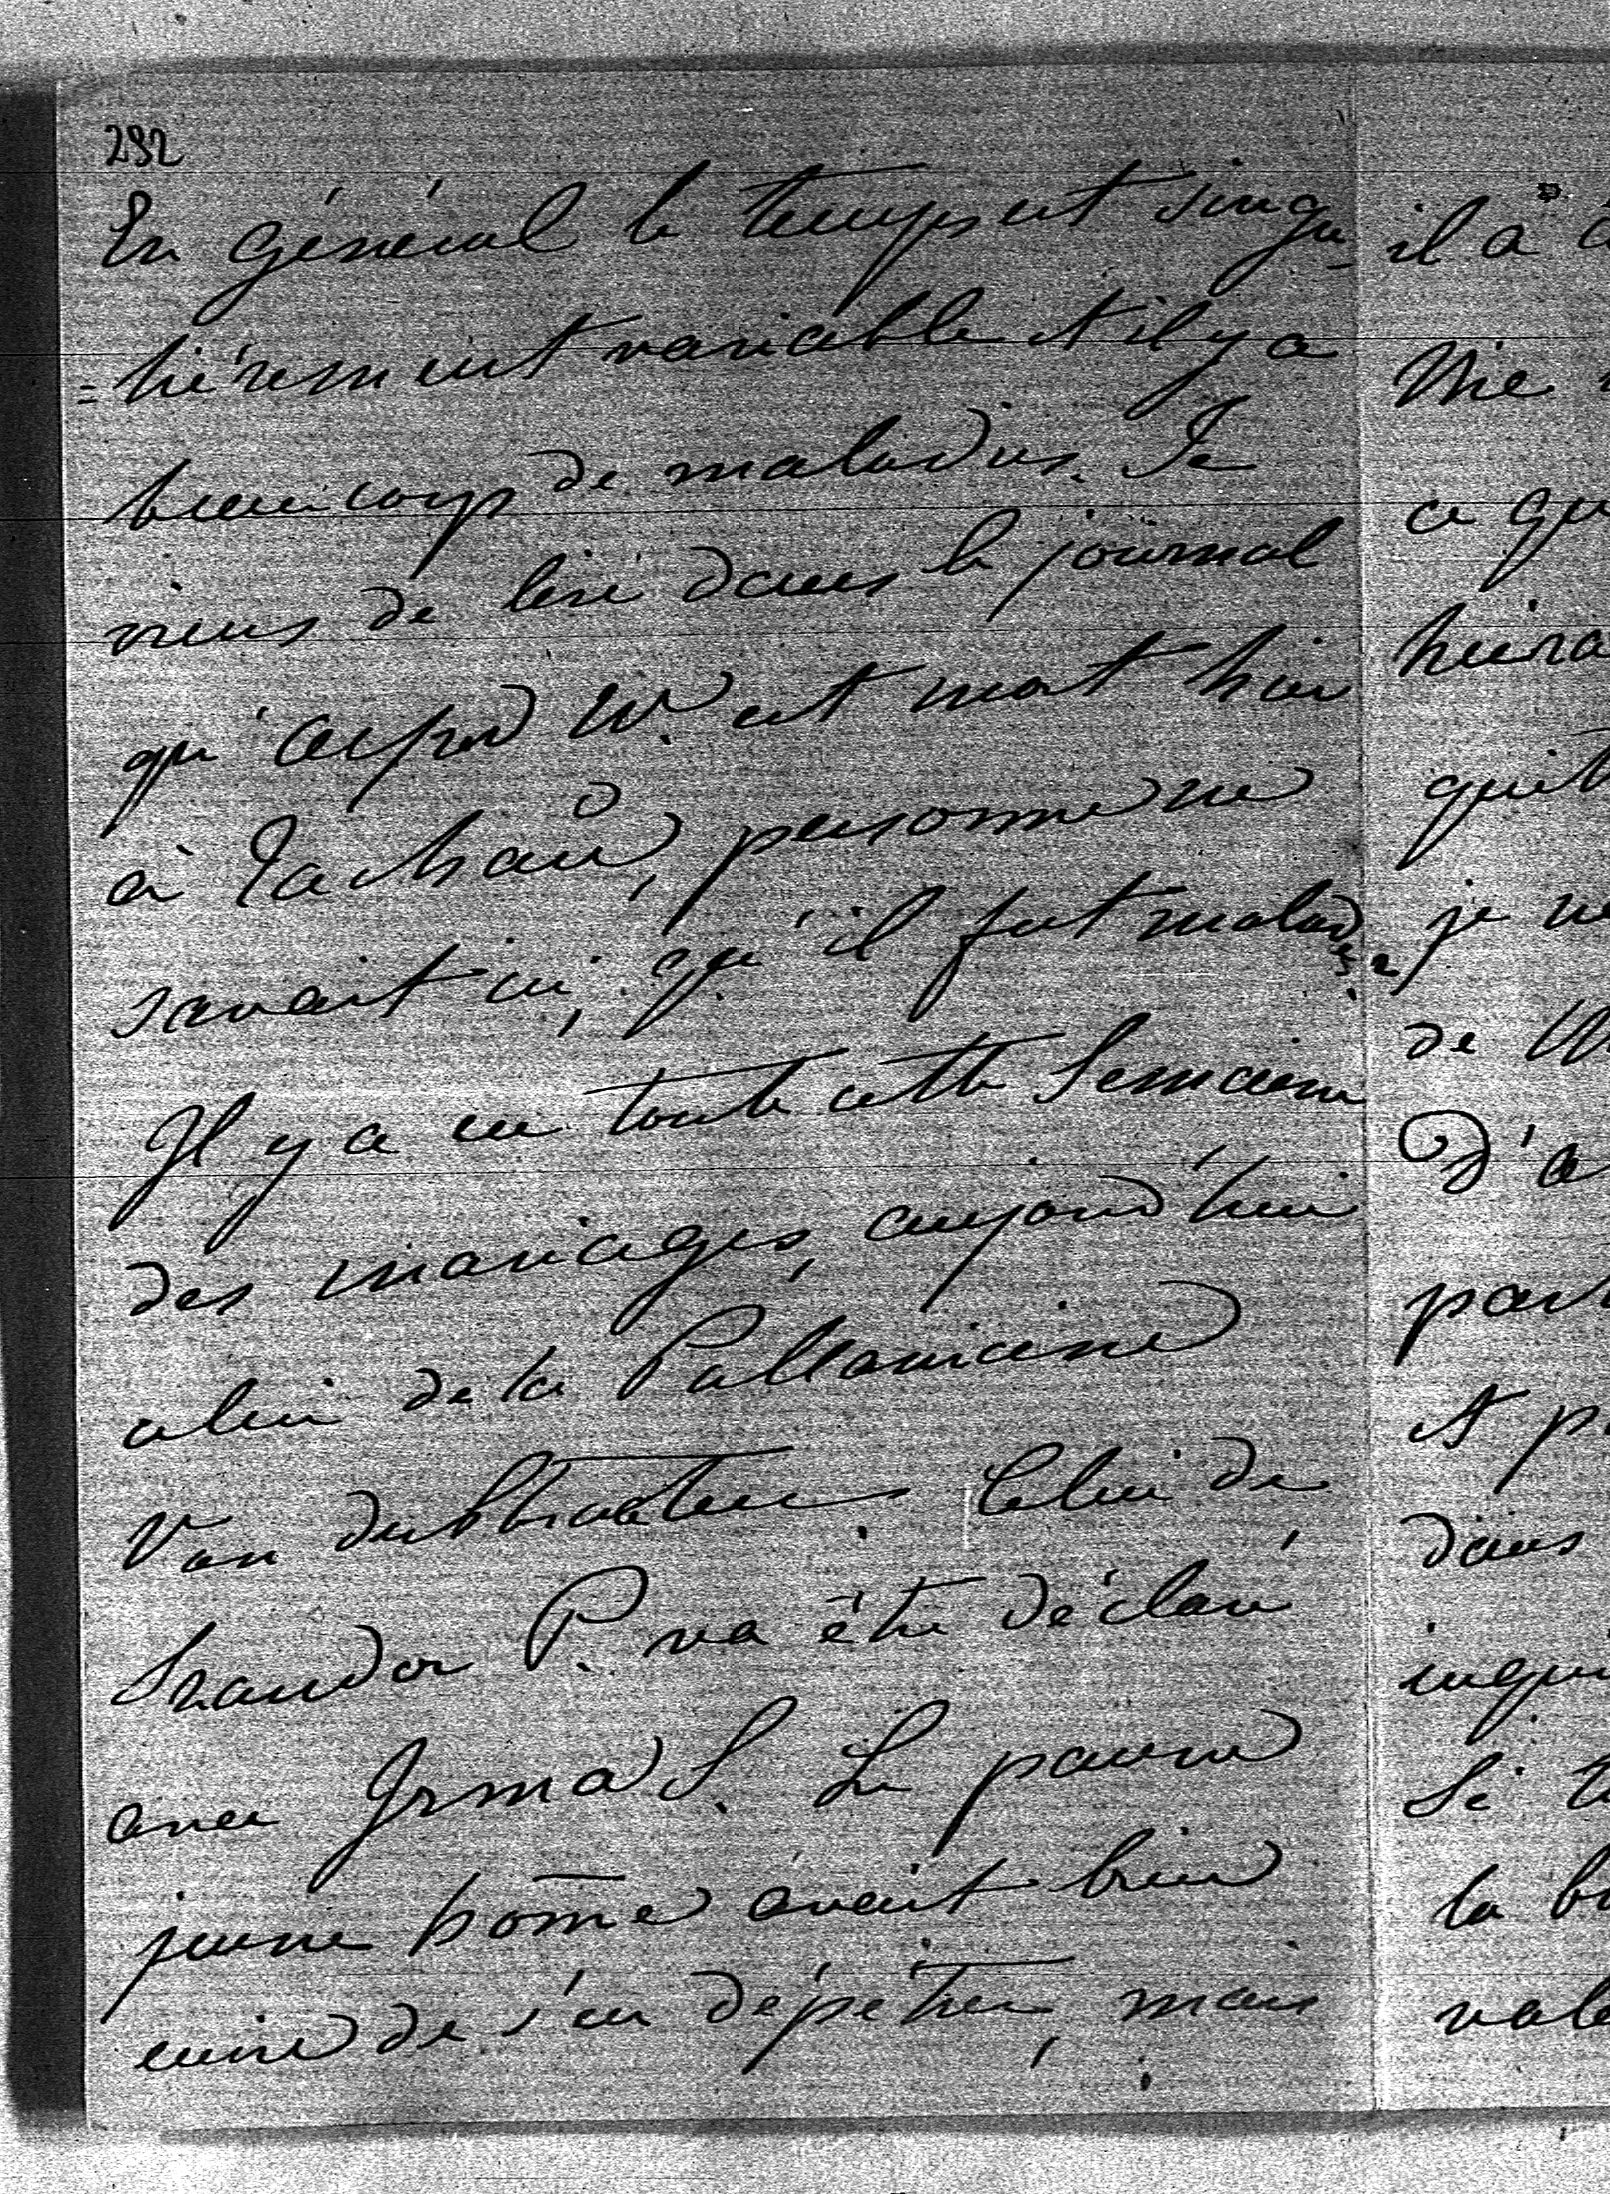 292
En général le temps est singu-
=lièrement variable et il y a
beaucoup de maladies. Je
viens de lire dans le journal
qu'Alfred W. est mort hier
à Tachaŭ, personne ne
savait ici, qu'il fut malade.
Il y a eu toute cette Semaine
des mariages, aujourd'hui
celui de la Pallavicini
Van der Straten. Celui de
Szandor P. va être déclaré
avec Irma S. Le pauvre
jeune hom̄e avait bien
envie de s'en dépêtrer, mais
il a
ce qu
je ne
de
D'a
part
et p
dans
inqui
Si t
la b
vale